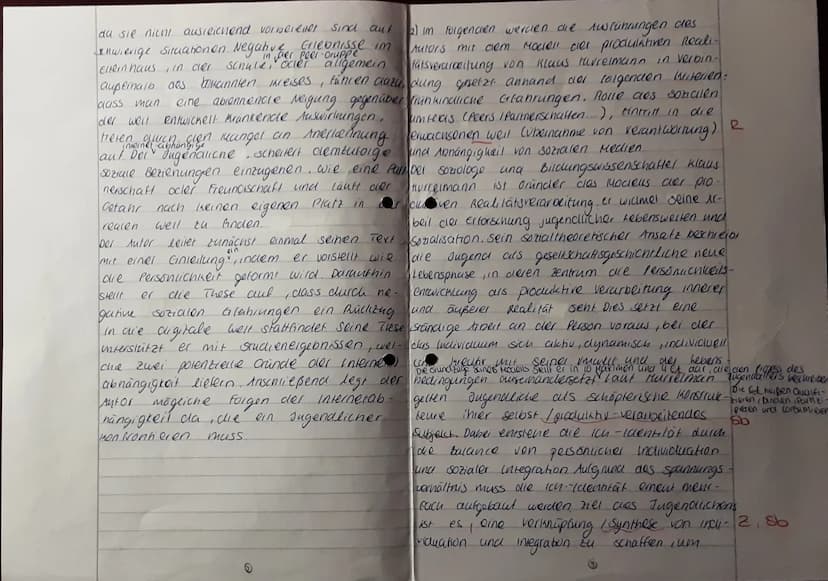 da sie nicht ausreichend vorbereitet sind auf
schwierige Situationen. Negative Erlebnisse im
in der Peer-Gruppe
Elternhaus, in der Schule, oder allgemein
außerhalb des bekannten Kreises, führen dazu,
dass man eine ablehnende Neigung gegenüber
der Welt entwickelt. Kränkende Auswirkungen,
treten durch den Mangel an Anerkennung
internetabhängige
auf. Der Jugendliche, scheitert demzufolge
soziale Beziehungen einzugehen, wie eine Part
nerschaft oder Freundschaft und läuft der
Gefahr nach keinen eigenen Platz in der
realen Welt zu finden.
Der Autor leitet zunächst einmal seinen Text
mit einer Einleitung ein, indem er vorstellt wie
die Persönlichkeit geformt wird. Daraufhin
stellt er die These auf, dass durch ne-
gative sozialen Erfahrungen ein Rückzug
in die digitale Welt stattfindet. Seine These
unterstützt er mit Studienergebnissen, wel-
che zwei potentielle Gründe der Internet
abhängigkeit liefern. Anschließend legt der
Autor mögliche Folgen der Internetab-
hängigkeit da, die ein Jugendlicher
konfrontieren muss.
6
2) Im folgenden werden die Ausführungen des
Autors mit dem Modell der produktiven Reali-
tätsverarbeitung von Klaus Hurrelmann in Verbin-
dung gesetzt anhand der folgenden Kriterien:
frühkindliche Erfahrungen, Rolle des sozialen
Umfelds (Peers/Partnerschaften...), Eintritt in die
erwachsenen Welt (Übernahme von Verantwortung)
R
und Abhängigkeit von sozialen Medien.
Der Soziologe und Bildungswissenschaftler Klaus
Hurrelmann ist Gründer das Modells der pro-
duktiven Realitätsverarbeitung. Er widmet seine Ar-
beit der Erforschung jugendlicher Lebensweisen und
Sozialisation. Sein sozialtheoretischer Ansatz beschreibt
die Jugend als gesellschaftsgeschichtliche neue
Lebensphase, in deren Zentrum die Persönlichkeits-
entwicklung als produktive Verarbeitung innerer
und äußerer Realität steht. Dies setzt eine
ständige Arbeit an der Person voraus, bei der
das Individuum sich aktiv, dynamisch, individuell
und kreativ mit seiner Umwelt und den Lebens-
Die Grundlage seines Modells stellt er in 10 Maximen und 4 EA dar, die den Prozess des
Jugendalters beschreiben
bedingungen auseinandersetzt. Laut Hurrelmann
Die EA heißen Qualifi-
gelten Jugendliche als schöpferische Konstruk-
zieren, Binden, Partizi-
pieren und Konsumieren
teure ihrer selbst / produktiv-verarbeitendes
Sb
Subjekt. Dabei entstehe die Ich-Identität durch
die Balance von persönlicher Individuation
und sozialer Integration. Aufgrund des Spannungs-
verhältnis muss die Ich-Identität einem mehr-
fach aufgebaut werden. Ziel des Jugendlichen
ist es, eine Verknüpfung / Synthese von Indi-
Z, Sb
viduation und Integration zu schaffen, um